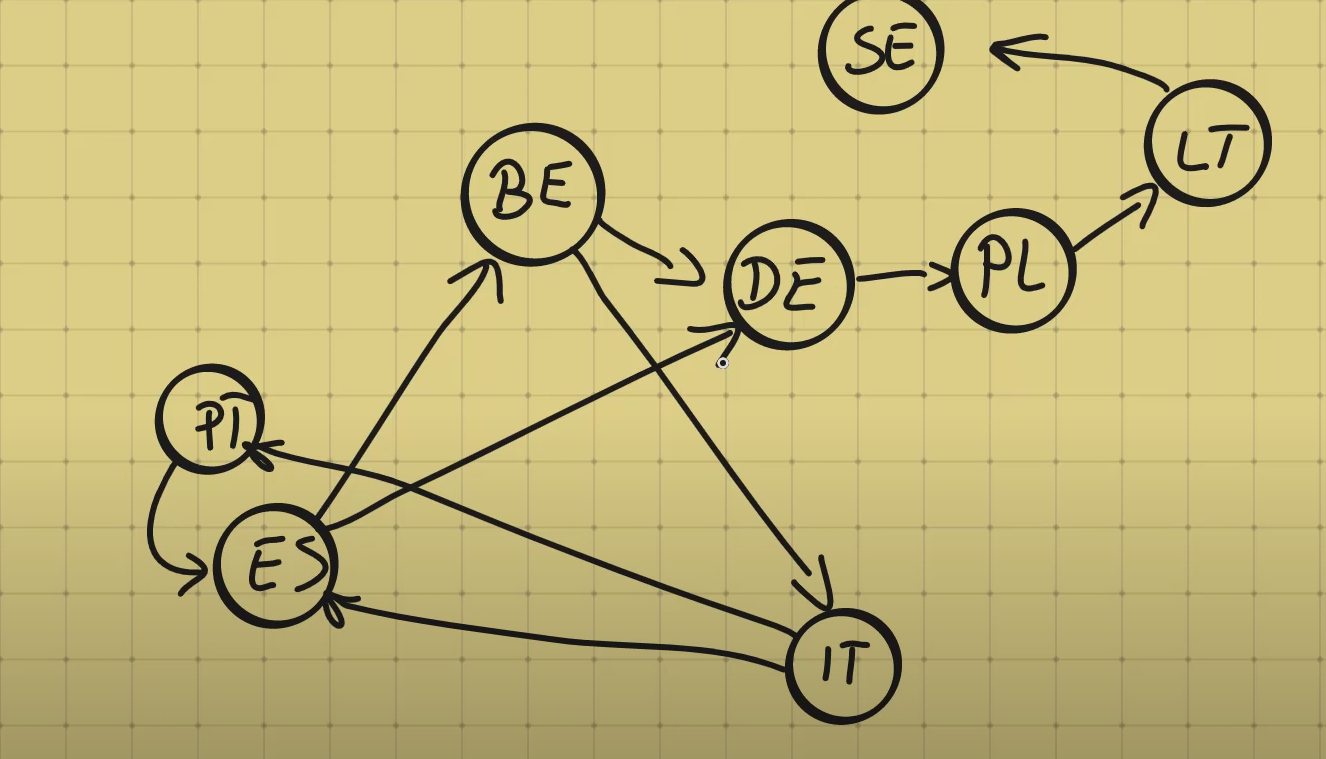 SE
LT
BE
DE
PL
PT
ES
IT